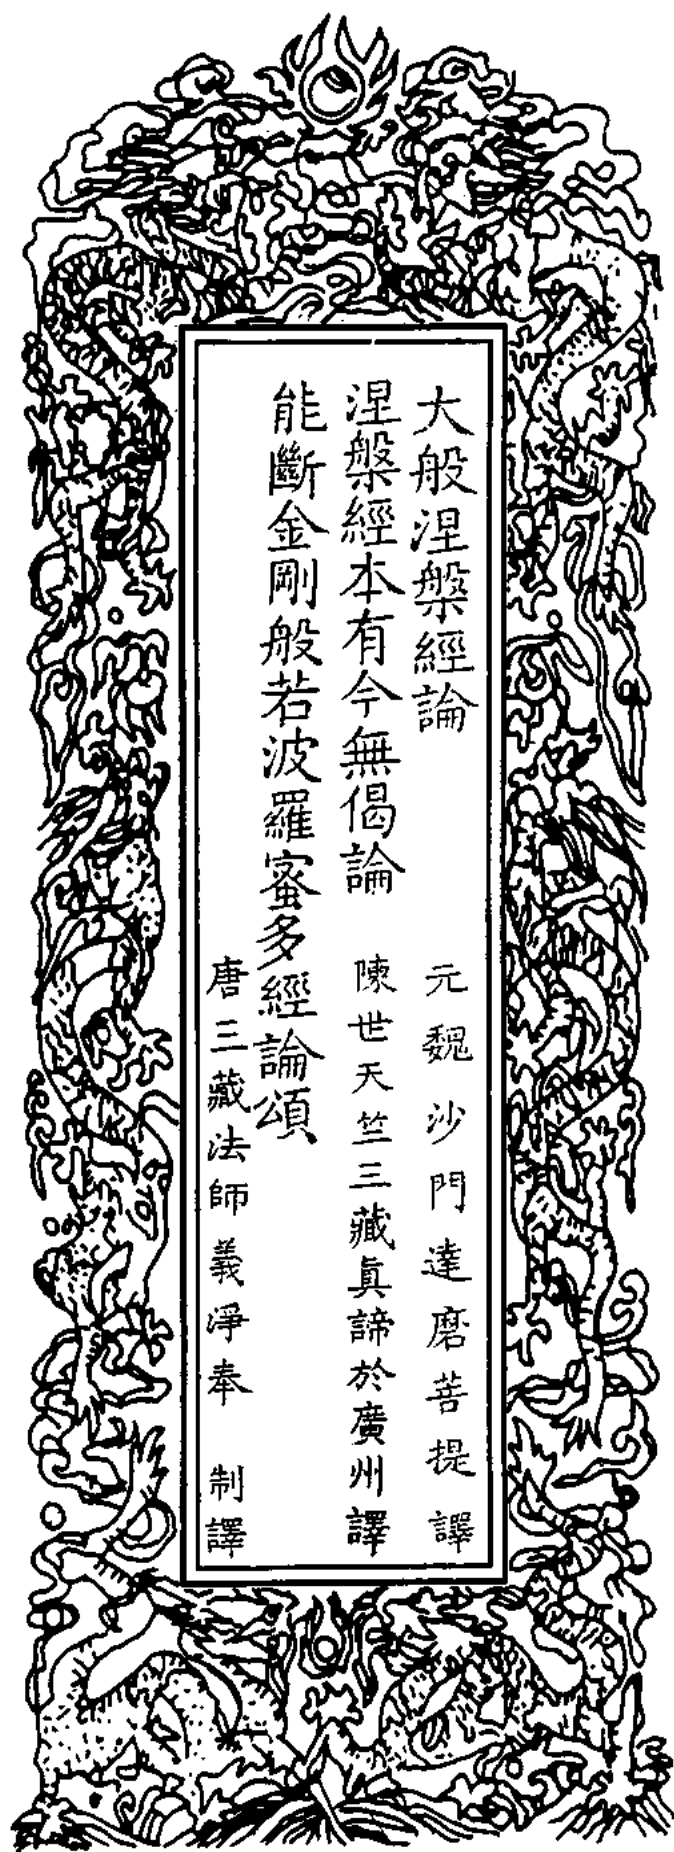 大般涅槃經論
元魏沙門達磨菩提譯
涅槃經本有今無偈論
陳世天竺三藏眞諦於廣州譯
能斷金剛般若波羅蜜多經論頌
唐三藏法師義淨奉　制譯